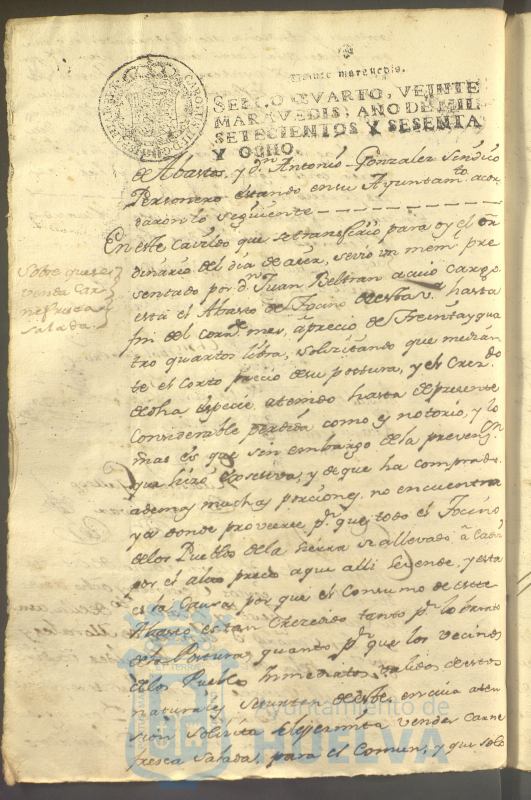 Veinte maravedis.
SELLO QVARTO, VEINTE
MARAVEDIS, AÑO DE MIL
SETECIENTOS Y SESENTA
Y OCHO.
de Abastos, y Dn. Antonio Gonzalez Sindico
Personero estando en su Ayuntamto. acor
daron lo seguiente
En este Cavildo que se transfirio para oy el or
dinario del dia de aier, se vio un mem. pre
sentado por dn. Juan Beltran a cuio cargo
está el Abasto de Tocino de esta Va. hasta
fin del corrte. mes, a precio de treinta y qua
tro quartos libra, solicitando que median
te el corto precio de su postura, y el Crecdo.
de dha especie, atenido hasta el presente
Considerable perdida como es notorio, y lo
mas es que sin embargo de la prevenon.
que hizo excesiva, y de que ha comprado
ademas muchas porciones, no encuentra
ya donde proveerse pr. que todo el Tocino
de los Pueblos de la Sierra se a llevado a Cadiz
por el alto precio aque alli se vende, y esta
es la Causa por que el Consumo de este
Abasto es tan Crecido tanto pr. lo barato
de la Postura, quanto pr. que los vecinos
de los Pueblos Inmediatos validos de estos
naturales se surten de este, en cuia aten
sion solicita se le permita vender carne
fresca salada, para el Comun, y que solo
Sobre que se
venda Car
ne fresca
salada.
Ayuntamiento de
HUELVA